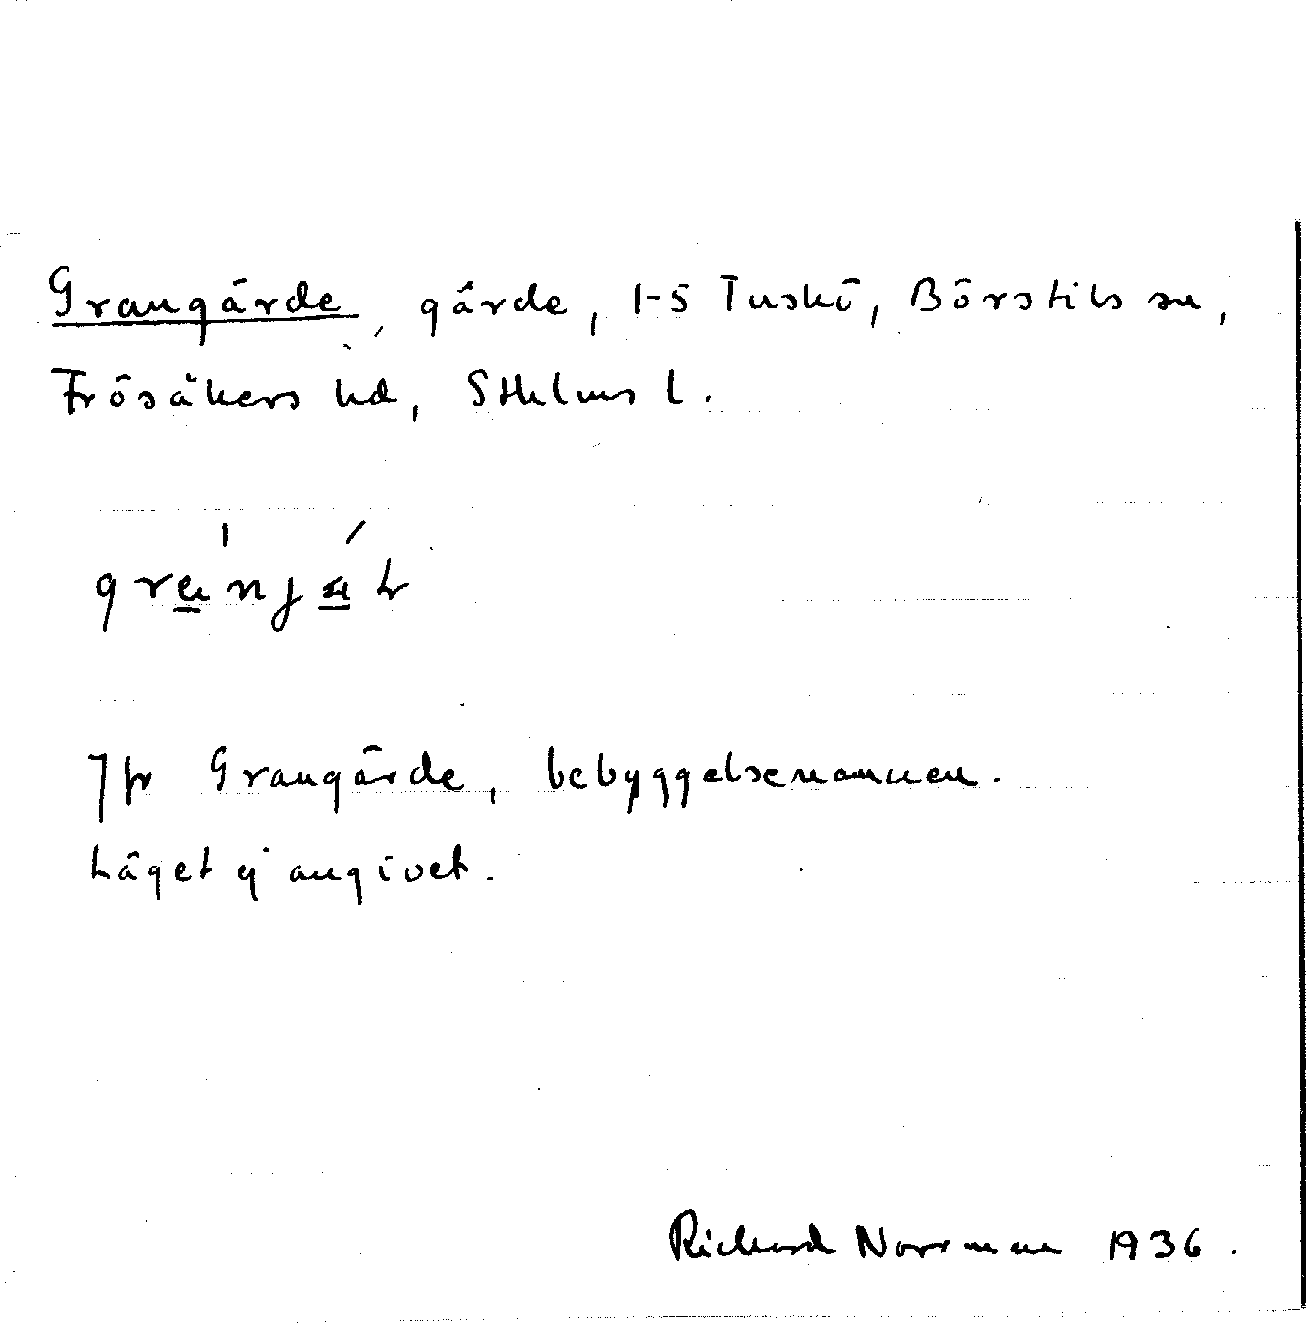 Grangärde, gärde, 1-5 Tuskö, Börstils sn,
Frösåkers hd, Sthlms l.
Jfr Grangärde, bebyggelsenamnen.
Läget ej angivet.
Richard Norrman 1936.